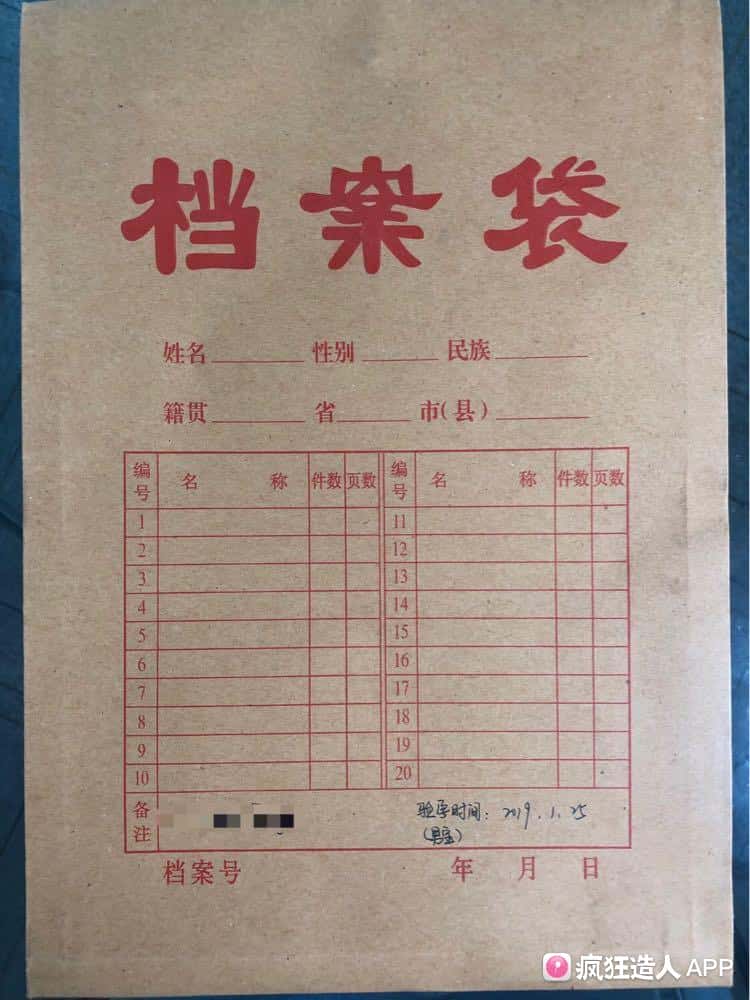 档案袋
姓名 性别 民族
籍贯 省 市(县)
编号 名称 件数 页数 编号 名称 件数 页数
1 11
2 12
3 13
4 14
5 15
6 16
7 17
8 18
9 19
10 20
备注 验孕时间: 2019.1.25
(男宝)
档案号 年 月 日
疯狂造人 APP